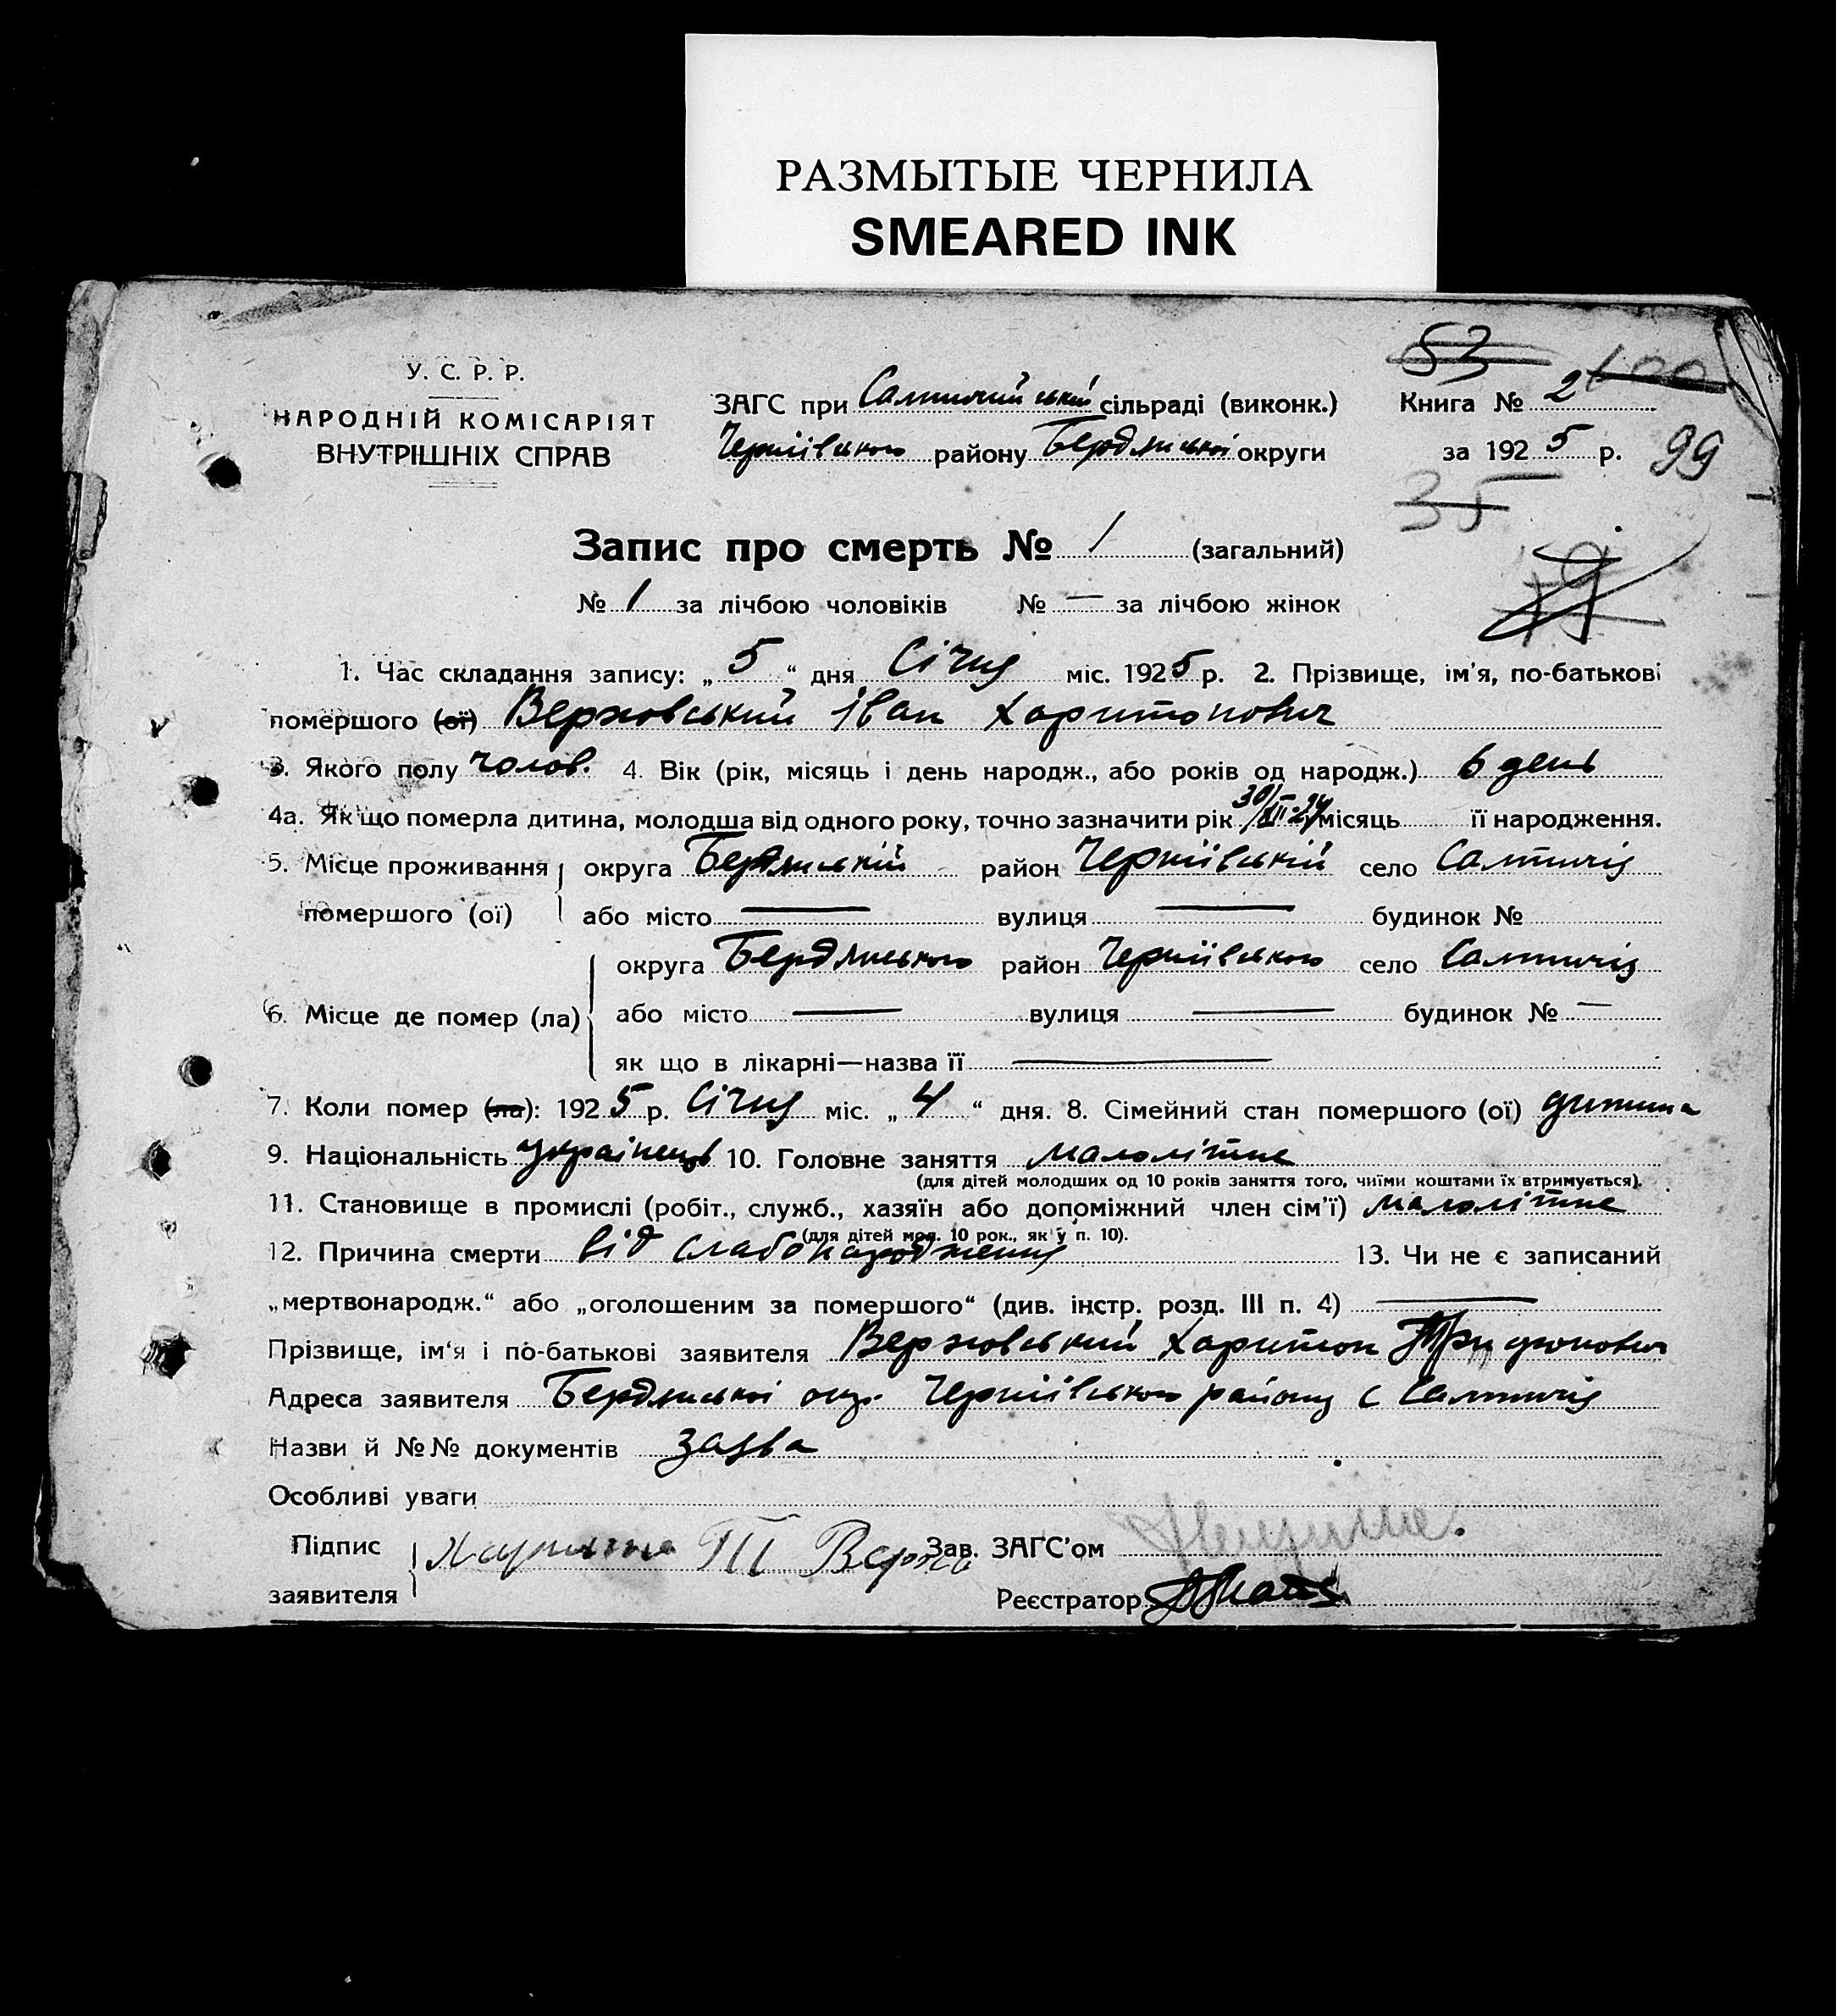 РАЗМЫТЫЕ ЧЕРНИЛА
SMEARED INK
53
У. С. Р. Р.
НАРОДНІЙ КОМІСАРІЯТ
ВНУТРІШНІХ СПРАВ
ЗАГС при Салтичийській сільраді (виконк.)
Чернiiвського району Бердянської округи
Книга № 2
за 1925 р. 99
35
Запис про смерть № 1 (загальний)
№ 1 за лічбою чоловіків № — за лічбою жінок
1. Час складання запису: „5“ дня Січня міс. 1925 р. 2. Прізвище, ім'я, по-батькові
помершого (ої) Верховський Іван Харитонович
3. Якого полу чолов. 4. Вік (рік, місяць і день народж., або років од народж.) 6 день
4а. Як що померла дитина, молодша від одного року, точно зазначити рік 30/XII-24 місяць її народження.
5. Місце проживання помершого (ої) округа Бердянській район Чернiiвській село Салтичія
або місто — вулиця — будинок №
6. Місце де помер (ла) округа Бердянського район Чернiiвського село Салтичія
або місто — вулиця — будинок № —
як що в лікарні—назва її —
7. Коли помер (ла): 1925 р. Січня міс. „4“ дня. 8. Сімейний стан помершого (ої) дитина
9. Національність українець 10. Головне заняття малолітне
(для дітей молодших од 10 років заняття того, чиїми коштами їх втримується).
11. Становище в промислі (робіт., служб., хазяїн або допоміжний член сім'ї) малолітне
(для дітей мол. 10 рок., як у п. 10).
12. Причина смерти від слабонародження 13. Чи не є записаний
„мертвонародж.“ або „оголошеним за помершого“ (див. інстр. розд. III п. 4) —
Прізвище, ім'я і по-батькові заявителя Верховський Харитон Трифонович
Адреса заявителя Бердянської окр. Чернiiвського району с Салтичія
Назви й №№ документів заява
Особливі уваги
Підпис заявителя Харитон Т Верхо
Зав. ЗАГС'ом
Реєстратор